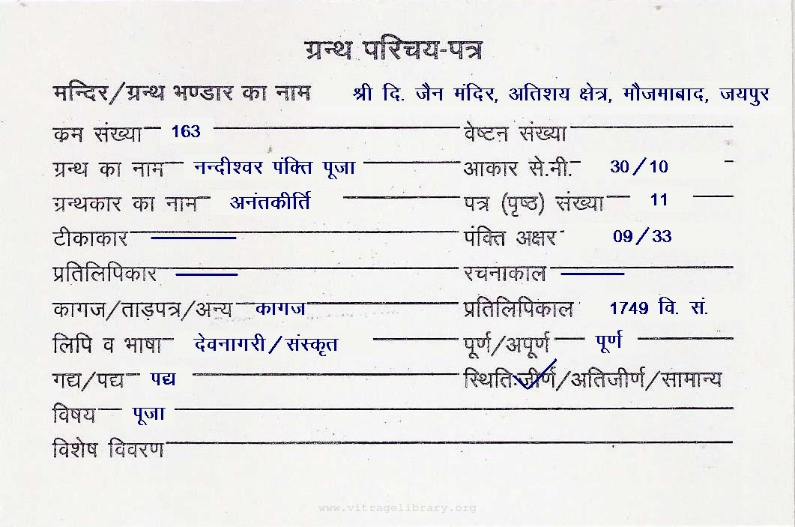 ग्रन्थ परिचय-पत्र
मन्दिर/ग्रन्थ भण्डार का नाम श्री दि. जैन मंदिर, अतिशय क्षेत्र, मौजमाबाद, जयपुर
कम संख्या 163 वेष्टन संख्या
ग्रन्थ का नाम नन्दीश्वर पंक्ति पूजा आकार से.मी. 30/10
ग्रन्थकार का नाम अनंतकीर्ति पत्र (पृष्ठ) संख्या 11
टीकाकार पंक्ति अक्षर 09/33
प्रतिलिपिकार रचनाकाल
कागज/ताड़पत्र/अन्य कागज प्रतिलिपिकाल 1749 वि. सं.
लिपि व भाषा देवनागरी/संस्कृत पूर्ण/अपूर्ण पूर्ण
गद्य/पद्य पद्य स्थिति:जीर्ण/अतिजीर्ण/सामान्य
विषय पूजा
विशेष विवरण
www.vitragelibrary.org